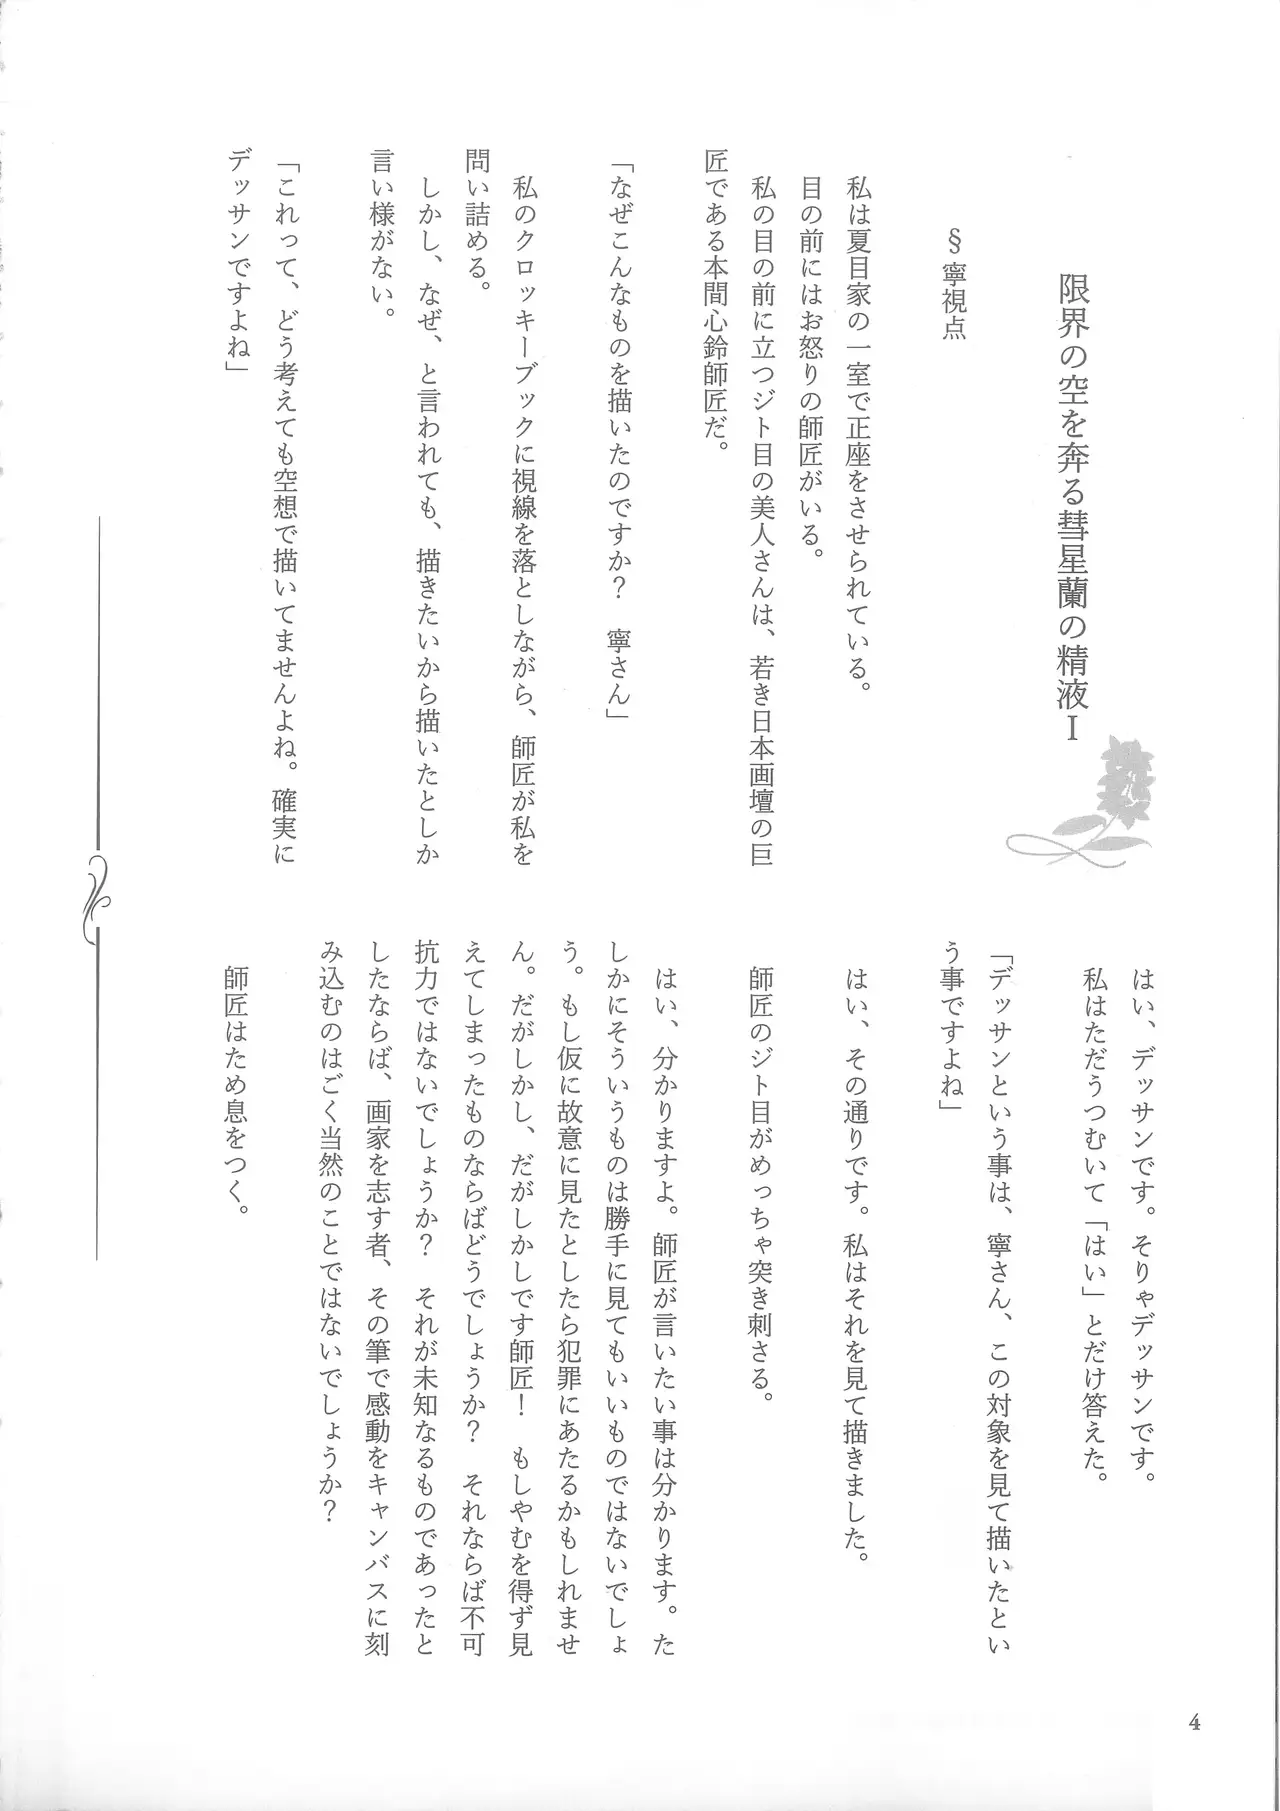 限界の空を奔る彗星蘭の精液Ⅰ
§寧視点
私は夏目家の一室で正座をさせられている。
目の前にはお怒りの師匠がいる。
私の目の前に立つジト目の美人さんは、若き日本画壇の巨
匠である本間心鈴師匠だ。
「なぜこんなものを描いたのですか？　寧さん」
私のクロッキーブックに視線を落としながら、師匠が私を
問い詰める。
しかし、なぜ、と言われても、描きたいから描いたとしか
言い様がない。
「これって、どう考えても空想で描いてませんよね。確実に
デッサンですよね」
はい、デッサンです。そりゃデッサンです。
私はただうつむいて「はい」とだけ答えた。
「デッサンという事は、寧さん、この対象を見て描いたとい
う事ですよね」
はい、その通りです。私はそれを見て描きました。
師匠のジト目がめっちゃ突き刺さる。
はい、分かりますよ。師匠が言いたい事は分かります。た
しかにそういうものは勝手に見てもいいものではないでしょ
う。もし仮に故意に見たとしたら犯罪にあたるかもしれませ
ん。だがしかし、だがしかしです師匠！　もしやむを得ず見
えてしまったものならばどうでしょうか？　それならば不可
抗力ではないでしょうか？　それが未知なるものであったと
したならば、画家を志す者、その筆で感動をキャンバスに刻
み込むのはごく当然のことではないでしょうか？
師匠はため息をつく。
4